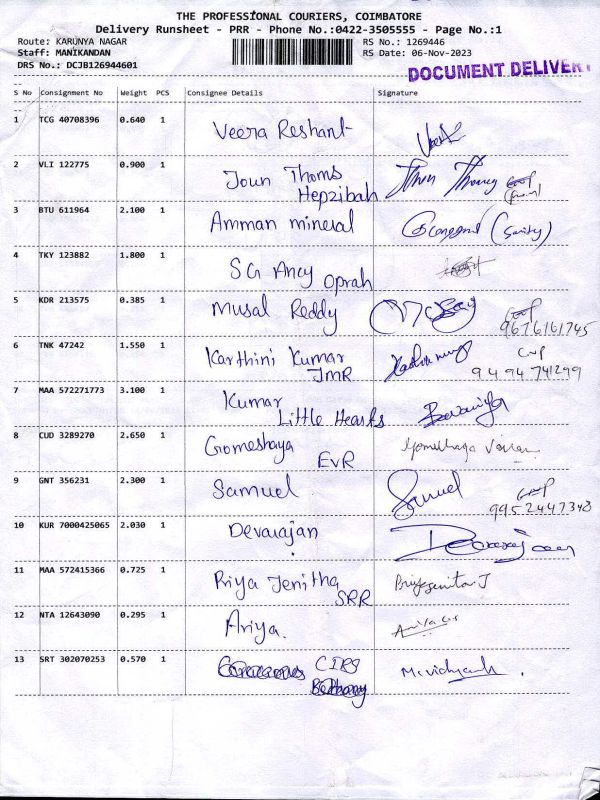 THE PROFESSIONAL COURIERS, COIMBATORE
Delivery Runsheet - PRR - Phone No.:0422-3505555 - Page No.:1
Route: KARUNYA NAGAR RS No.: 1269446
Staff: MANIKANDAN RS Date: 06-Nov-2023
DRS No.: DCJB126944601
DOCUMENT DELIVERY
S No Consignment No Weight PCS Consignee Details Signature
1 TCG 40708396 0.640 1 Veera Reshant
2 VLI 122775 0.900 1 Joun Thoms
Hepzibah
3 BTU 611964 2.100 1 Amman mineral
4 TKY 123882 1.800 1 SG Ancy Oprah
5 KDR 213575 0.385 1 Musal Reddy
9676161745
6 TNK 47242 1.550 1 Karthini Kumar
JMR 9494741299
7 MAA 572271773 3.100 1 Kumar
Little Hearts
8 CUD 3289270 2.650 1 Gomeshaya
EVR
9 GNT 356231 2.300 1 Samuel Samuel
9952447348
10 KUR 7000425065 2.030 1 Devarajan Devarajan
11 MAA 572415366 0.725 1 Priya Jenitha
SRR
12 NTA 12643090 0.295 1 Ariya.
13 SRT 302070253 0.570 1 CIRS
Bethany